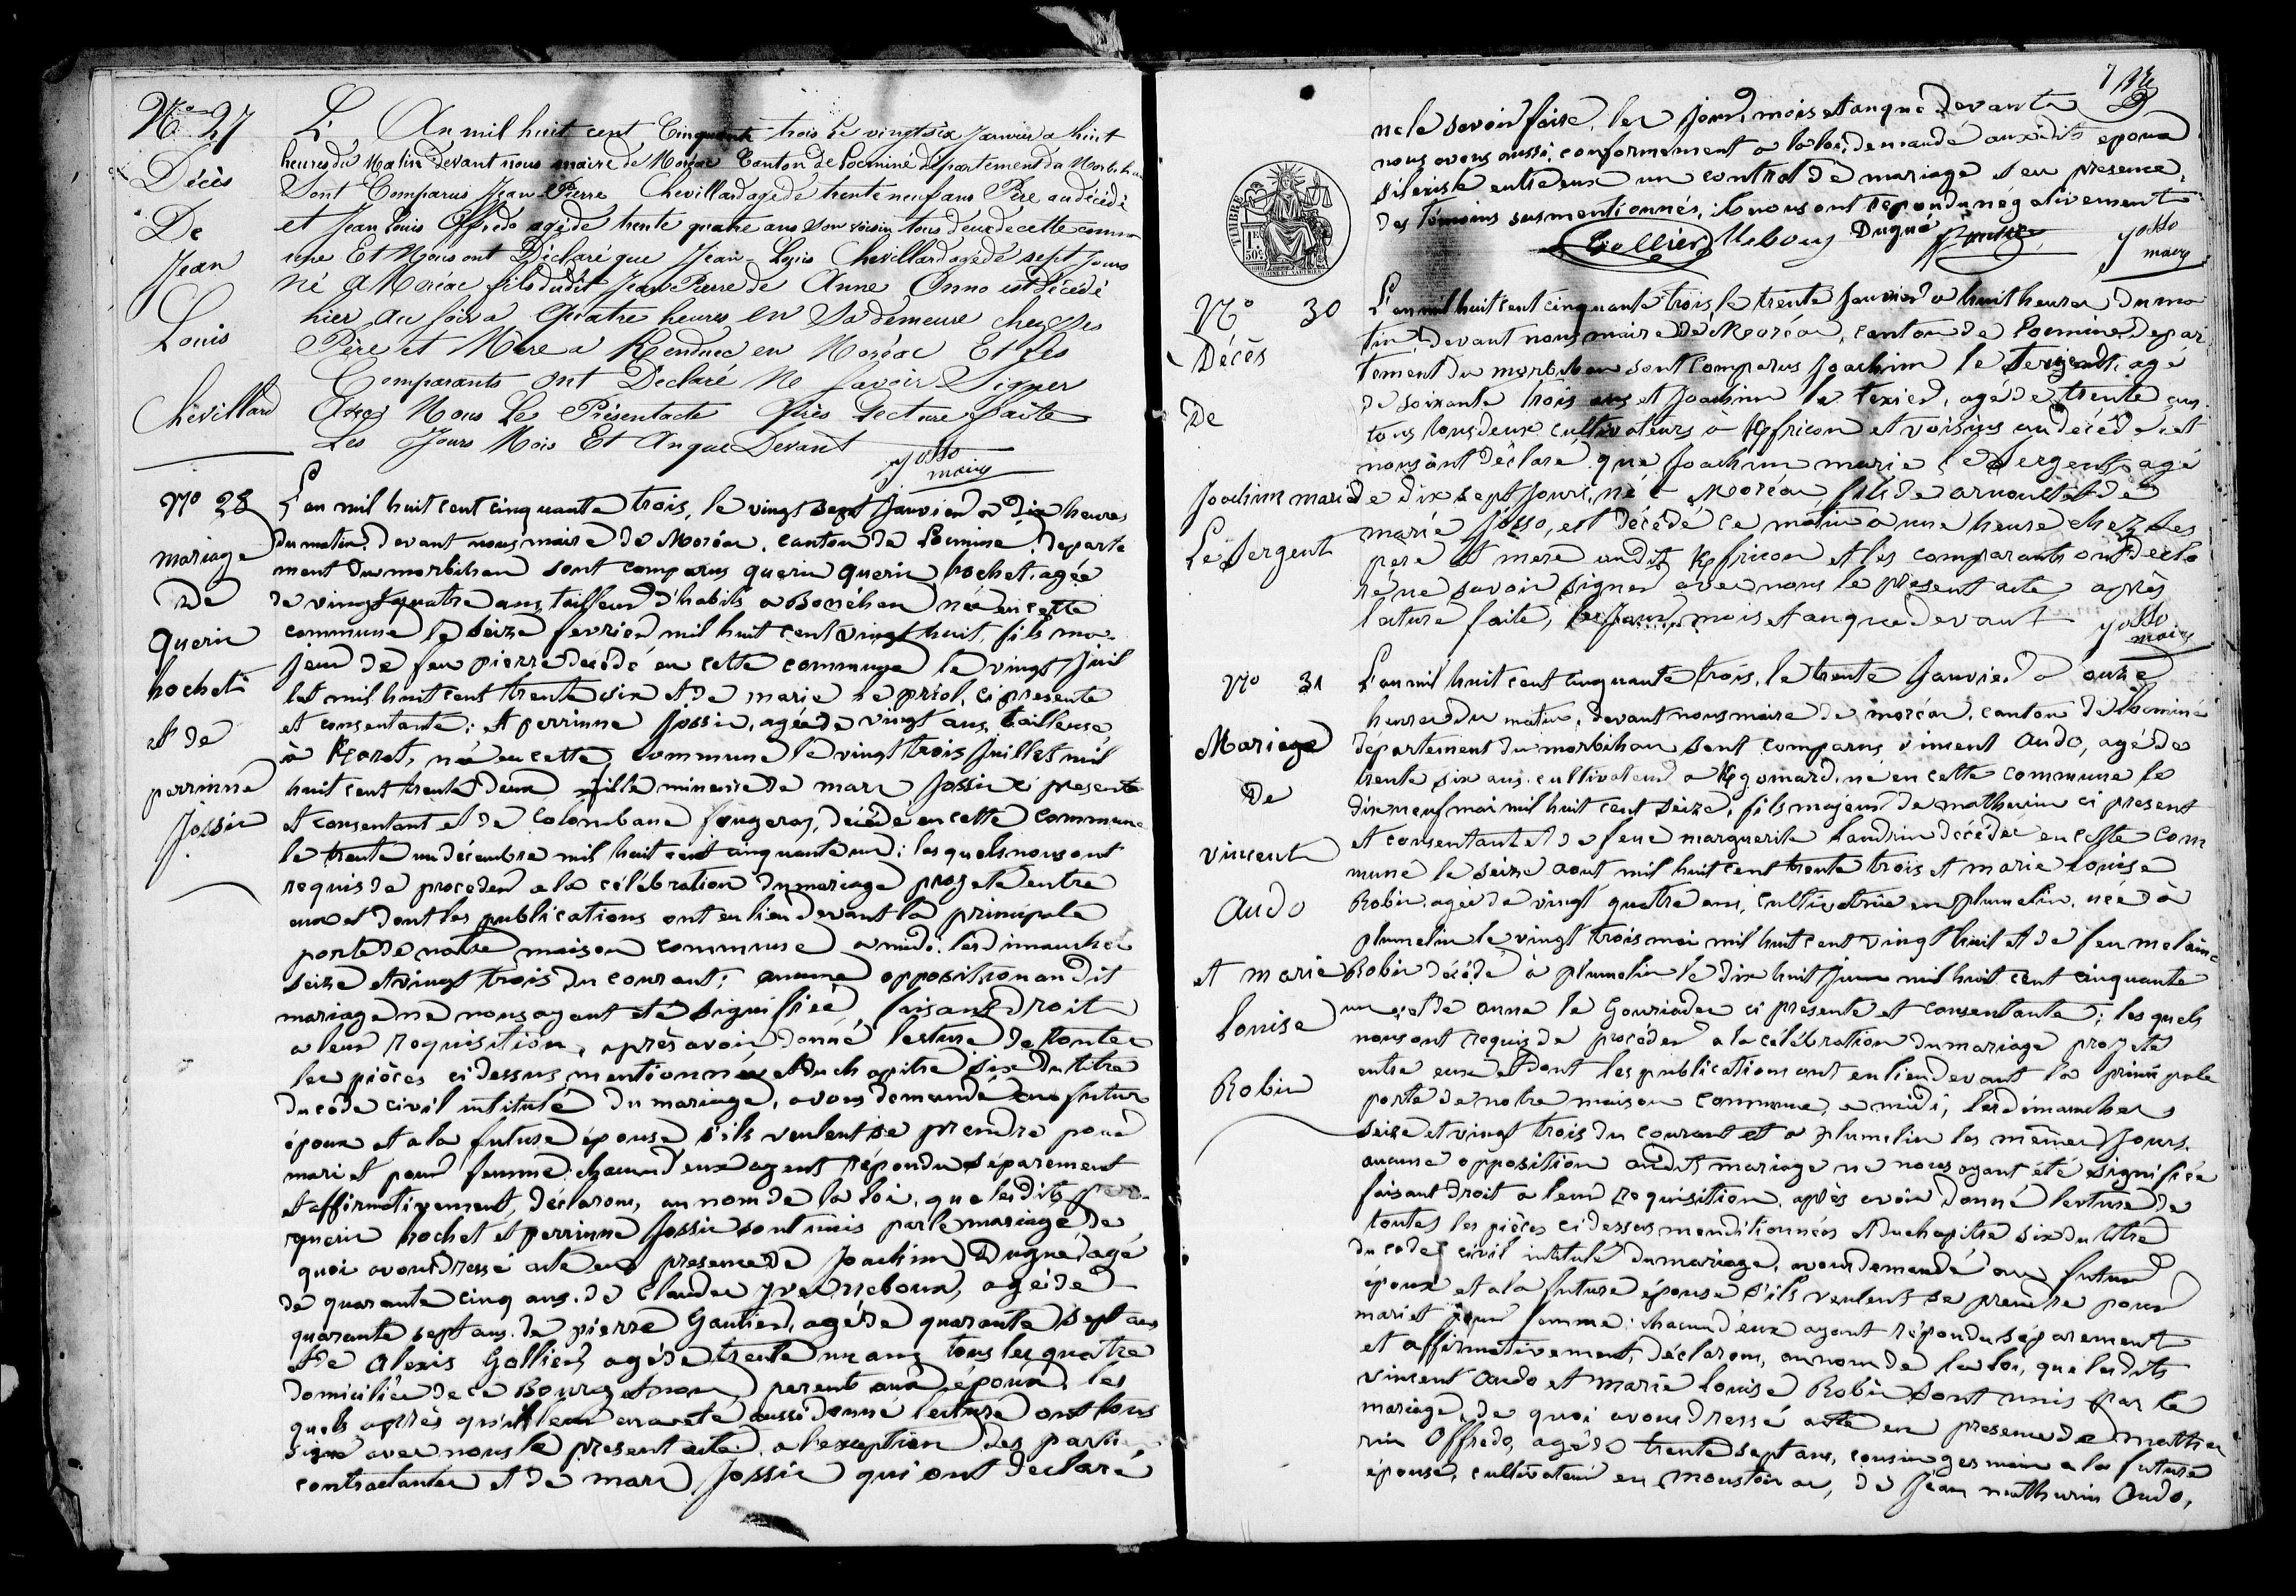 N° 27
Décès
De
Jean
Louis
Chevillard
L'An mil huit cent Cinquante trois Le vingt six Janvier a huit
heures du Matin devant nous maire de Moréac Canton de Locminé département du Morbihan
Sont Comparus Jean Pierre Chevillard agé de trente neuf ans Père au décédé
et Jean Louis Offredo agé de trente quatre ans Son voisin tous deux de cette commu
une Et Nous ont Déclaré que Jean-Louis Chevillard agé de sept Jours
né a Moréac fils dudit Jean Pierre de Anne Onno est décédé
hier au soir a Quatre heures en Sa demeure chez Ses
Père et Mere a en Moréac Et Les
Comparants ont Declaré Ne Savoir Signer
Avec Nous Le Présent acte Après Lecture Faite
Les Jours Mois Et An que Devant
yosso
maire
N° 28
mariage
De
querin
hochet
et de
perrinne
Jossic
L'an mil huit cent cinquante trois, le vingt sept Janvier a dix heures
du matin, devant nous maire de Moréac, canton de Locminé, departe
ment du morbihan sont comparus querin querin hochet, agée
de vingt quatre ans, tailleur d'habits a né en cette
commune le seize fevrier mil huit cent vingt huit, fils ma-
jeur de feu pierre décédé en cette commune le vingt Juil
let mil huit cent trente six et de marie le priol, ci presente
et consentante: et perrinne Jossic, agée de vingt ans, tailleuse
à né en cette commune le vingt trois Juillet mil
huit cent trente deux fille mineure de marc Jossic ci present
et consentant et de Colombane fougeray, décédé en cette commune
le trente un décembre mil huit cent cinquante un: les quels nous ont
requis de proceder a la célébration du mariage projeté entre
eux et dont les publications ont eu lieu devant la principale
porte de notre maison commune a midi: les dimanches
seize et vingt trois du courant; aucune opposition au dit
mariage ne nous ayant été signifiée, faisant droit
a leur requisition, après avoir donné lecture de toutes
les pièces ci dessus mentionnées et du chapitre six du titre
du code civil intitulé du mariage, avons demandé au futur
époux et a la future épouse s'ils veulent se prendre pour
mari et pour femme: chacun d'eux ayant répondu séparement
et affirmativement, déclarons, au nom de la loi, que les dits
querin hochet et perrinne Jossic sont unis par le mariage de
quoi avons dressé acte en presence de Joachim Dugué, agé
de quarante cinq ans, de Claude yves agé de
quarante sept ans, de pierre Gautier, agé de quarante sept ans
et de Alexis Gallier, agé de trente un ans tous les quatre
domiciliés de ce Bourg et non parents aux époux, les
quels après qu'il leur en a été aussi donné lecture ont tous
signé avec nous le present acte, a l'exception des parties
contractantes et de marc Jossic qui ont declaré
ne le savoir faire, les Jour, mois et an que devant
nous avons aussi, conformement a la loi, demandé aux dits epoux
s'il existe entre eux un contrat de mariage et en presence
des temoins susmentionnés, ils nous ont repondu négativement
Gallier Dugué yosso
maire
TIMBRE
1F
50c
N° 30
Décès
De
Joachim marie
Le Sergent
L'an mil huit cent cinquante trois, le trente Janvier a huit heures du ma
tin, devant nous maire de Moréac, canton de Locminé, depar
tement du morbihan sont comparus Joachim le Sergent, agé
de soixante trois ans et Joachim le Texier, agé de trente ans
tous tous deux cultivateurs à et voisins au décédé, et
nous ont déclaré que Joachim marie le Sergent, agé
de dix sept Jours, né a Moréac, fils de arnoult et de
marie Josso, est décédé ce matin a une heure chez ses
pere et mere audit et les comparants ont décla
ré ne savoir signer avec nous le present acte après
lecture faite, les Jour, mois et an que devant
yosso
maire
N° 31
Mariage
De
Vincent
Audo
et marie
louise
Robin
L'an mil huit cent cinquante trois, le trente Janvier a onze
heures du matin, devant nous maire de moréac, canton de Locminé
département du morbihan sont comparus vincent Audo, agé de
trente six ans, cultivateur a né en cette commune le
dix neuf mai mil huit cent seize, fils majeur de mathurin ci present
et consentant et de feue marguerite Landrin décédée en cette com
mune le seize aout mil huit cent trente trois et marie louise
Robin, agée de vingt quatre ans, cultivatrice en plumelin, née à
plumelin le vingt trois mai mil huit cent vingt huit et de feu melaine
Robin décédé à plumelin le dix huit Juin mil huit cent cinquante
un, et de anne le ci presente et consentante; les quels
nous ont requis de procéder a la célébration du mariage projeté
entre eux et dont les publications ont eu lieu devant la principale
porte de notre maison commune, a midi, les dimanches
seize et vingt trois du courant et a plumelin les mêmes Jours.
aucune opposition audit mariage ne nous ayant été signifiée
faisant droit a leur requisition, après avoir donné lecture de
toutes les pièces ci dessus mentionnées et du chapitre six du titre
du code civil intitulé du mariage, avons demandé au futur
époux et a la future épouse s'ils veulent se prendre pour
mari et pour femme: chacun d'eux ayant répondu séparement
et affirmativement, déclarons, au nom de la loi, que les dits
vincent Audo et marie louise Robin sont unis par le
mariage, de quoi avons dressé acte en presence de mathu
rin Offredo, agé de trente sept ans, cousin germain a la future
épouse, cultivateur en moustoir ac, de Jean mathurin Audo,